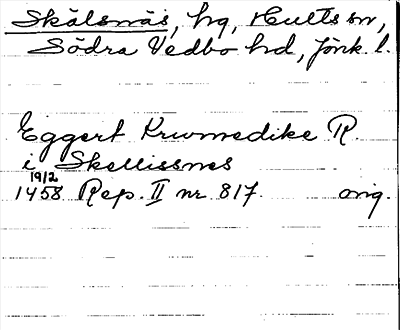 Skälsnäs, hg, Hults sn,
Södra Vedbo hd, Jönk. l.
Eggert Krummedike R.
i Skellissnes
19/2
1458 Rep. II nr 817. orig.